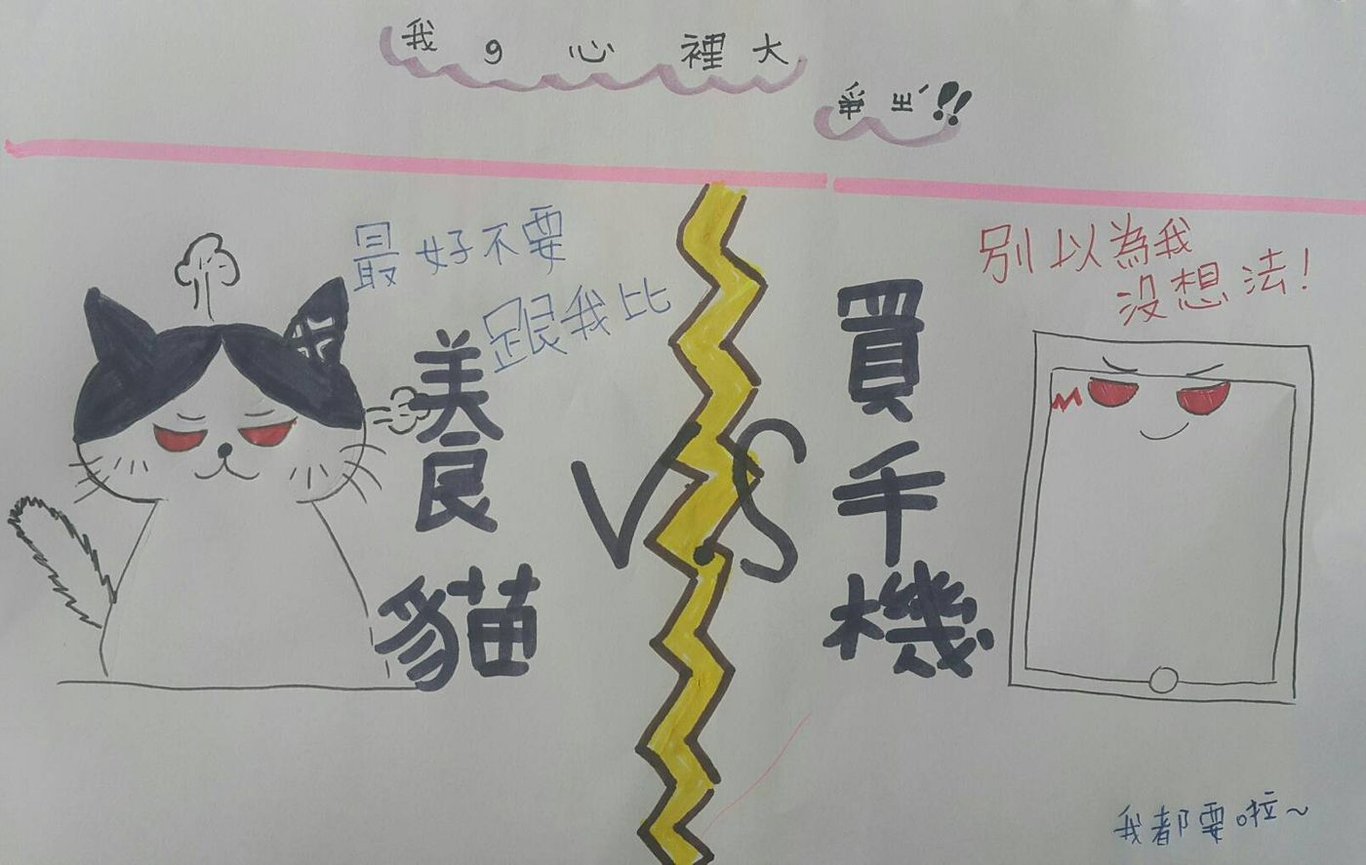 我 9 心 裡 大
爭 ㄓˋ!!
最好不要
跟我比
養貓
V.S
買手機
別以為我
沒想法!
我都要啦~